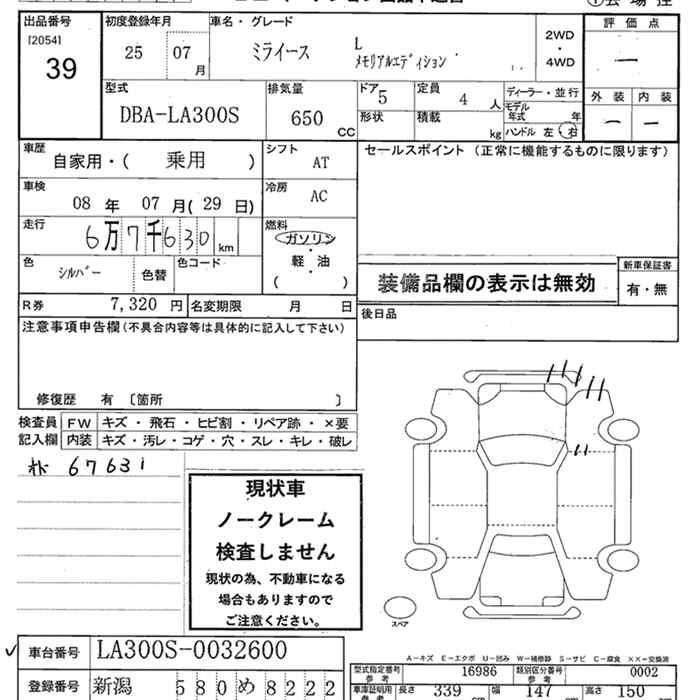 出品番号 初度登録年月 車名・グレード 評価点
[2054] 39
25 07 月
ミライース L メモリアルエディション
2WD ・ 4WD
―
型式 排気量 ドア 5 定員 4 人 ディーラー・並行 外装 内装
DBA-LA300S 650 CC
モデル年式 年
形状 積載 kg ハンドル 左 右 ― ―
車歴 シフト セールスポイント (正常に機能するものに限ります)
自家用・( 乗用 ) AT
車検 冷房
08 年 07 月( 29 日) AC
走行 燃料
6万7千630 km ガソリン ・ 軽・油 ・ ( )
色 シルバー 色替 色コード
装備品欄の表示は無効 新車保証書 有・無
R券 7,320 円 名変期限 月 日
後日品
注意事項申告欄(不具合内容等は具体的に記入して下さい)
修復歴 有 〔箇所 〕
検査員 FW キズ・飛石・ヒビ割・リペア跡・×要
記入欄 内装 キズ・汚レ・コゲ・穴・スレ・キレ・破レ
67631
現状車
ノークレーム
検査しません
現状の為、不動車になる
場合もありますので
ご注意ください。
スペア
✓ 車台番号 LA300S-0032600
A-キズ E-エクボ U-凹み W-補修跡 S-サビ C-腐食 ××-交換済
型式指定番号 参考 16986 類別区分番号 参考 0002
登録番号 新潟 580め8222
車庫証明用 参考 長さ 339 cm 幅 147 cm 高さ 150 cm